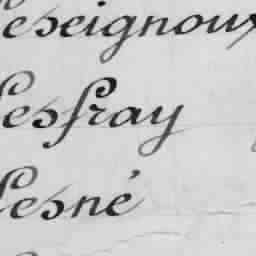 Leseignoux
Lesfray
Lesné